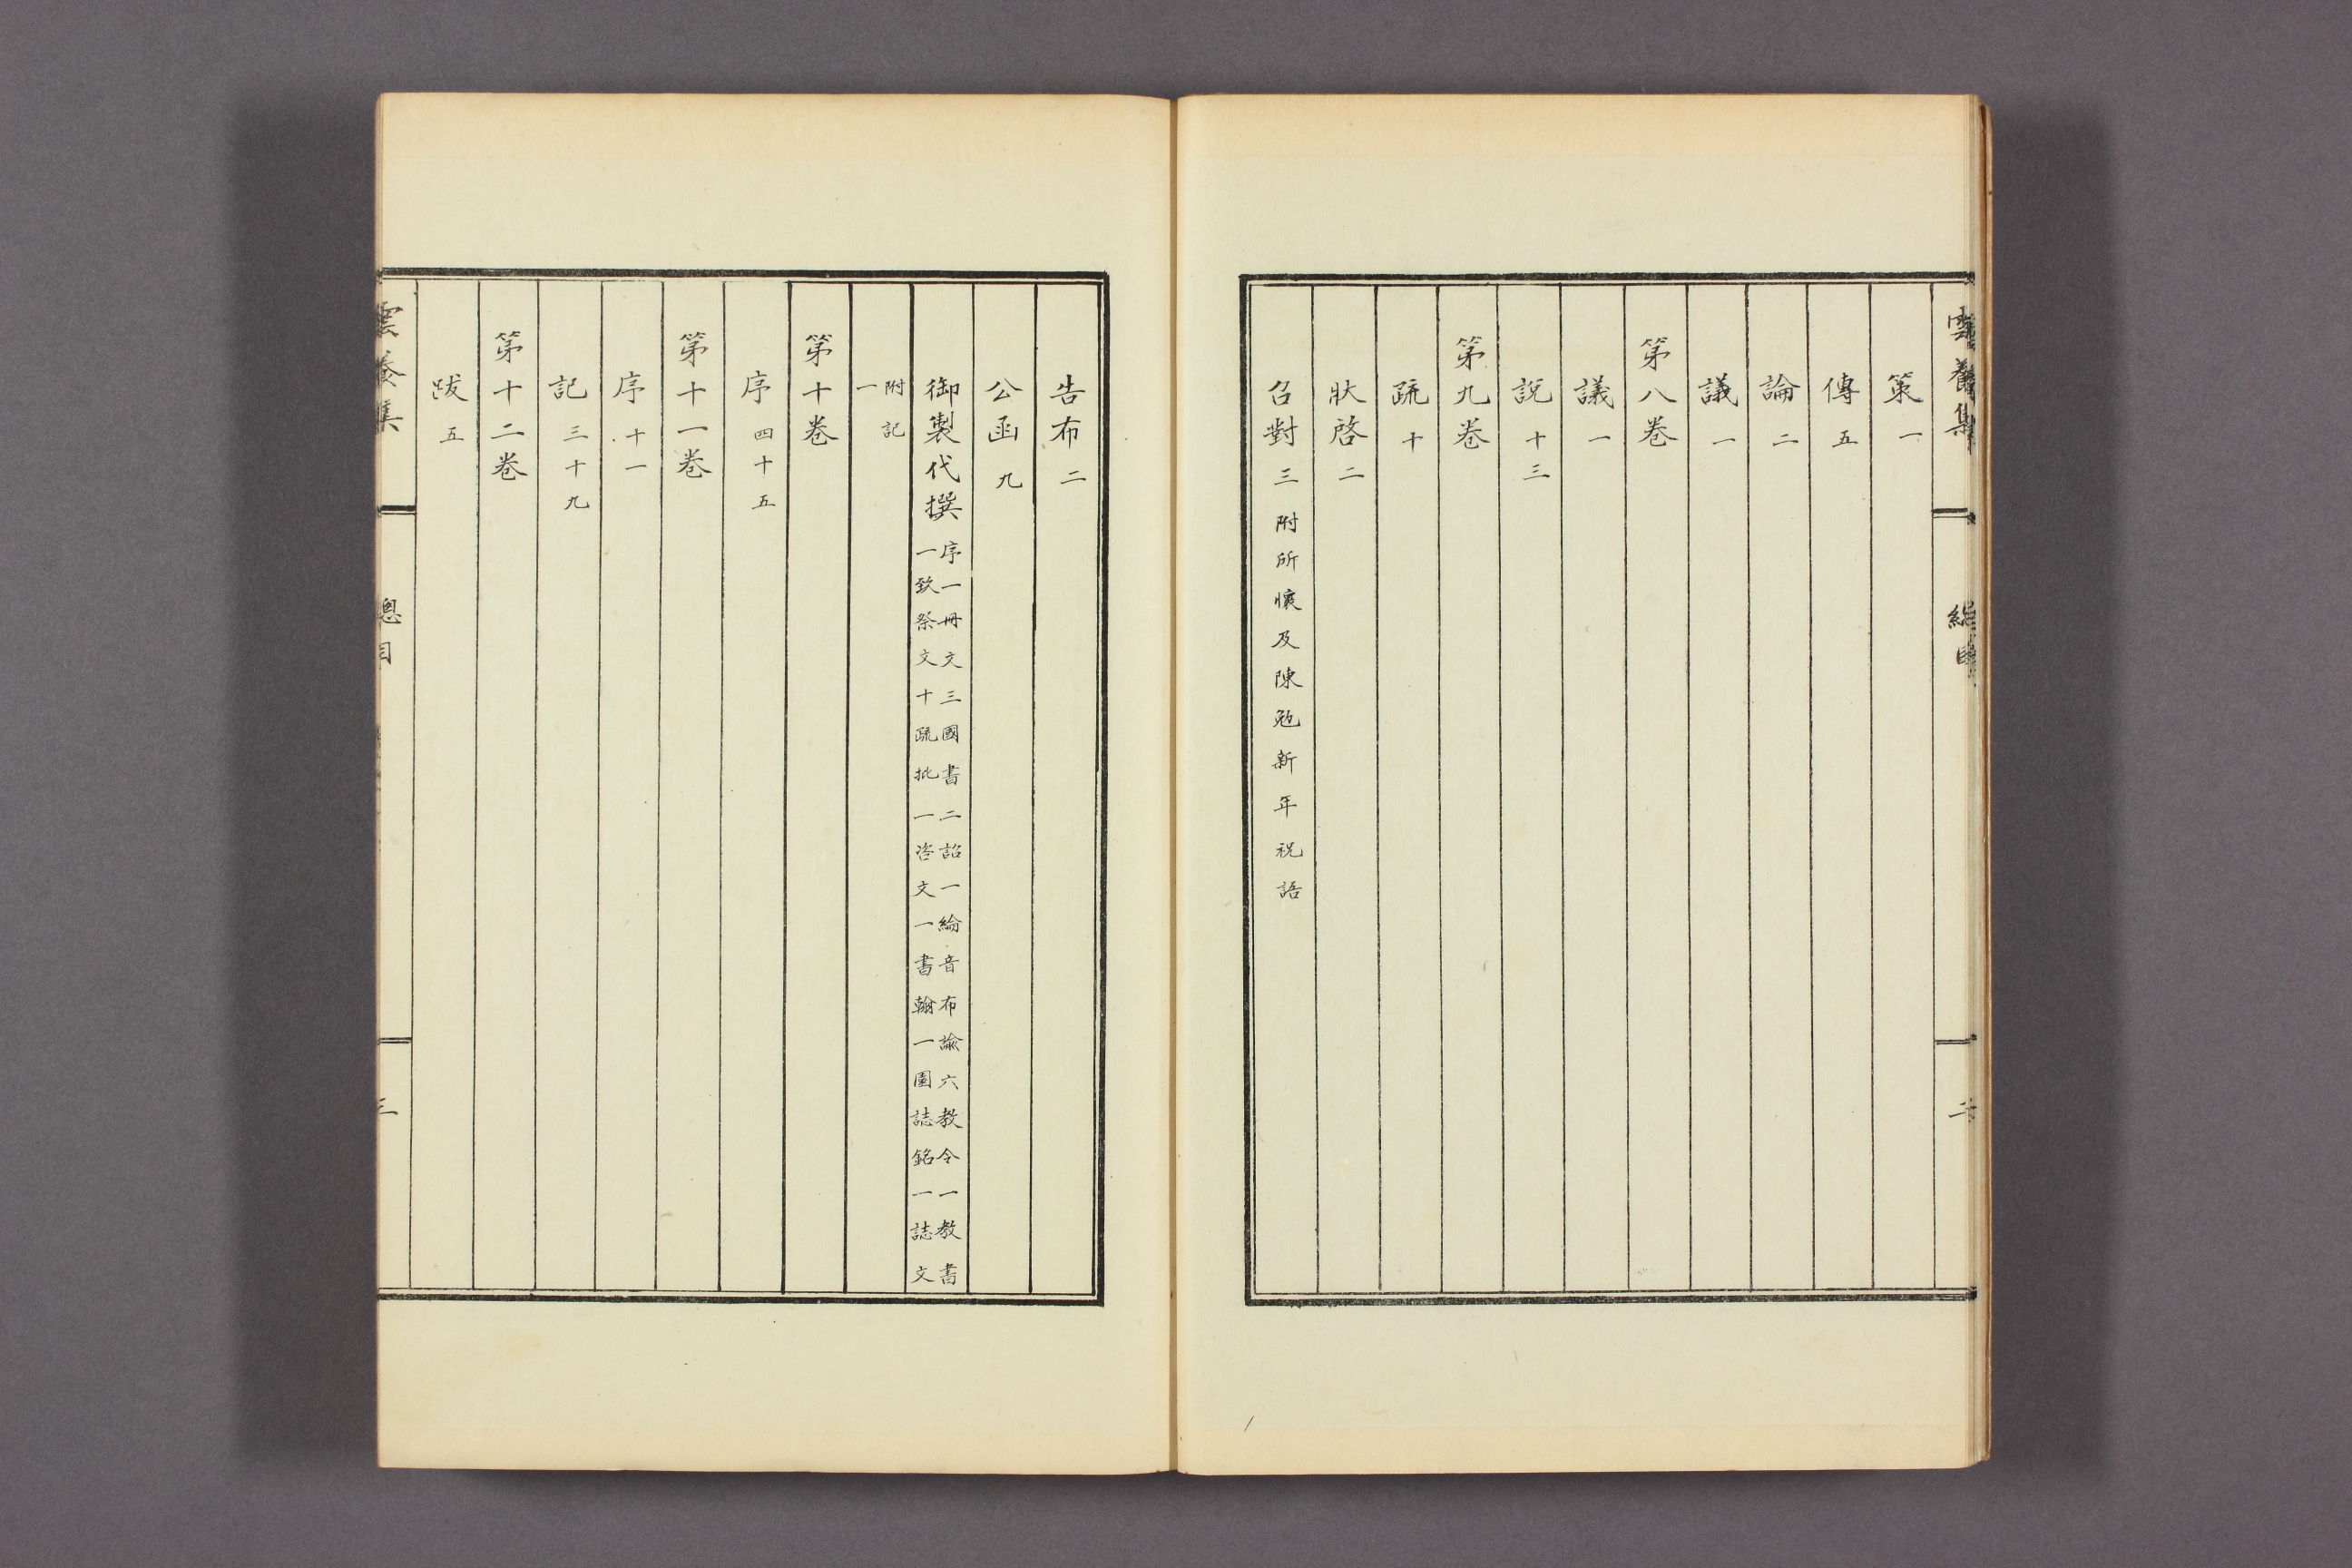 雲養集 總目 二
策 一
傳 五
論 二
議 一
第八卷
議 一
說 十三
第九卷
疏 十
狀啓 二
召對 三 附所懷及陳勉新年祝語
告布 二
公函 九
御製代撰 序一冊文三國書二詔一綸音布諭六敎令一敎書
一致祭文十疏批一咨文一書翰一園誌銘一誌文
附記
一
第十卷
序 四十五
第十一卷
序 十一
記 三十九
第十二卷
跋 五
雲養集 總目 三